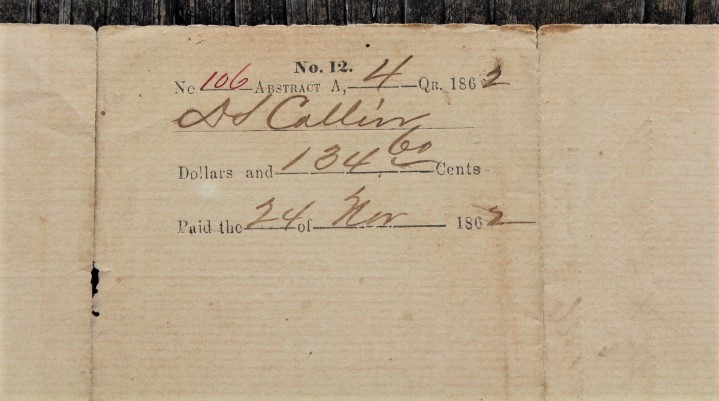 No. 12.
No 106 ABSTRACT A, 4 QR. 1862
DS Collin
Dollars and 134.60 Cents
Paid the 24 of Nov 1862